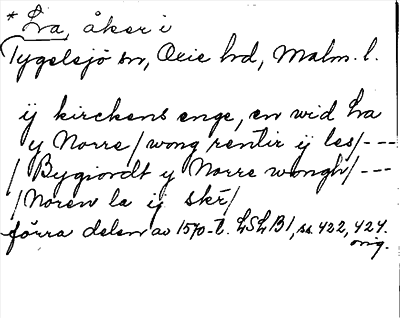 * Lra, åker i
Tygelsjö sn, Oxie hd, Malm. l.
ij kirckens enge, en wid Lra
y Norre/wong rentir ij les/---
/Bygiordt y Norre wongh/---
/Noren la ij skr̄/
förra delen av 1570-t. LSLB1, ss. 422, 424.
orig.